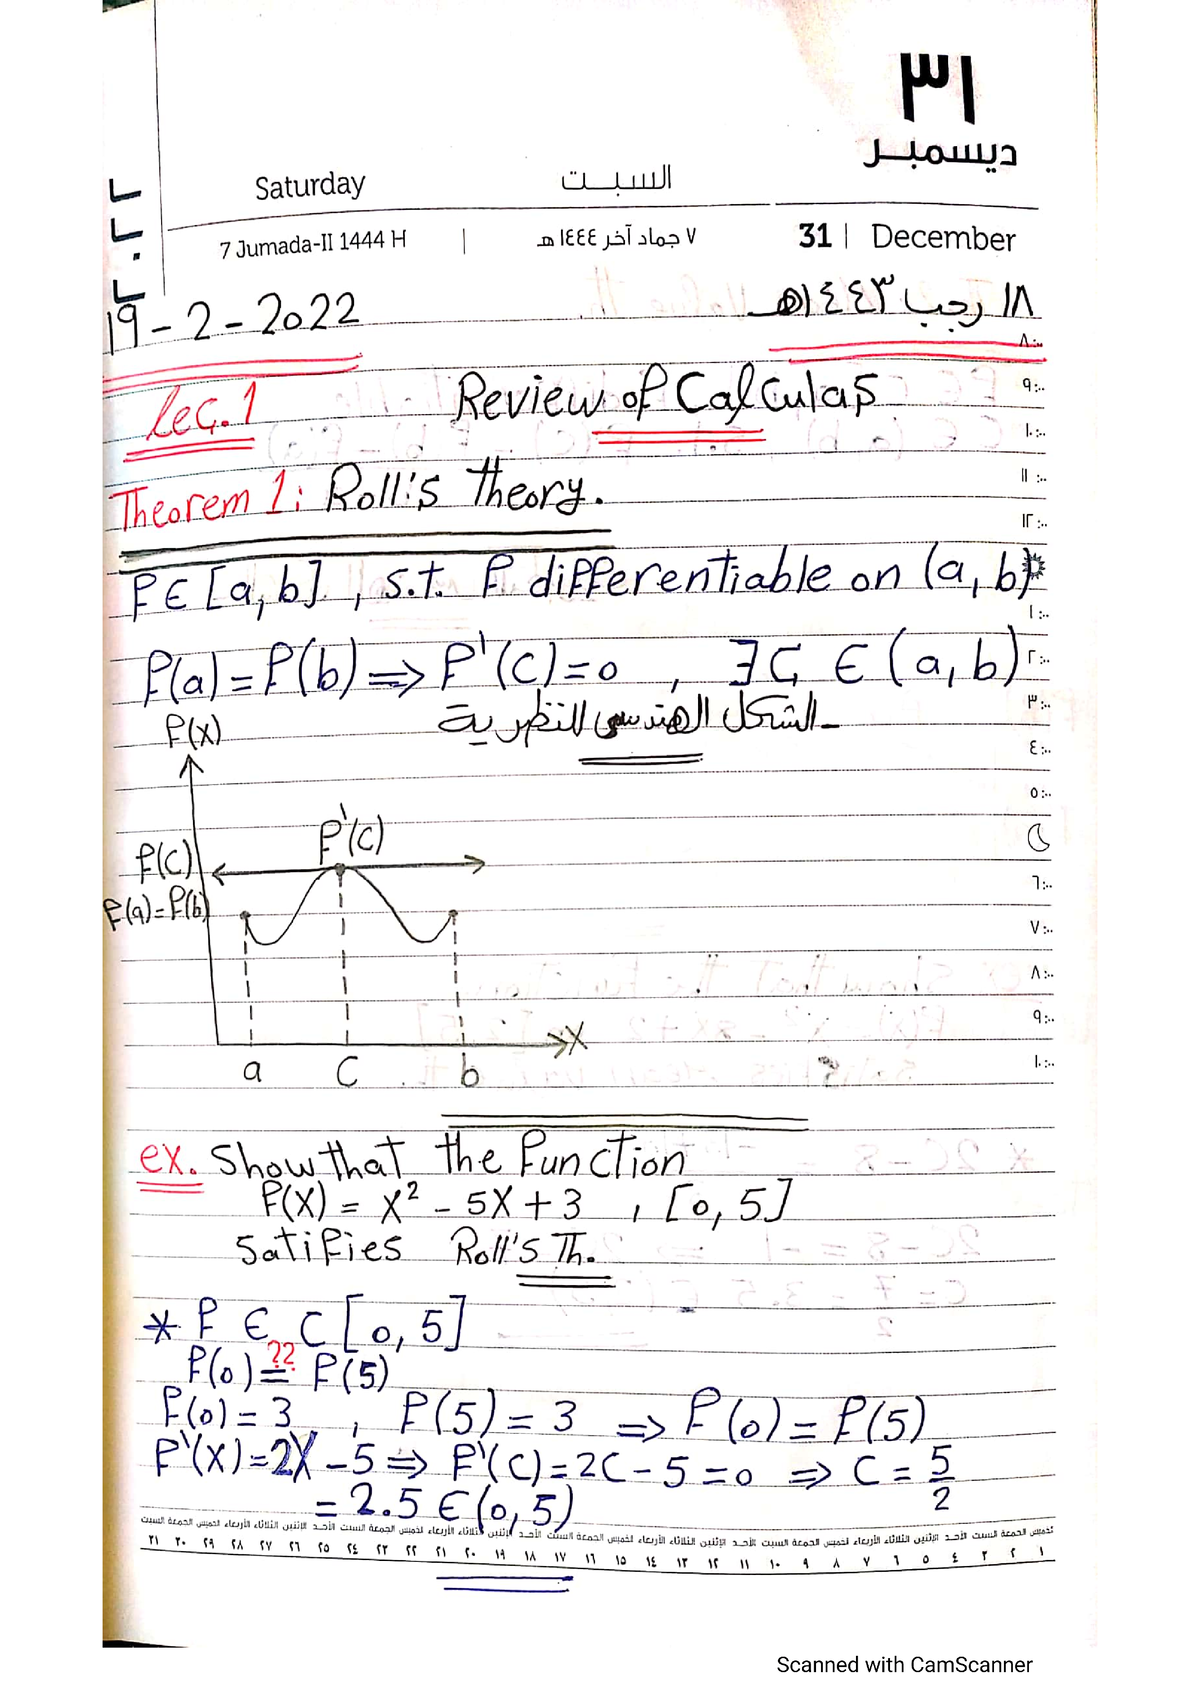 ٣١
ديسمبر
Saturday السبت
7 Jumada-II 1444 H | ٧ جماد آخر ١٤٤٤ هـ 31 | December
19-2-2022 ١٨ رجب ١٤٤٣هـ
٨:٠٠
Lec.1 Review of Calculas
٩:٠٠
١٠:٠٠
Theorem 1: Roll's theory.
١١:٠٠
١٢:٠٠
f∈[a,b], s.t. f differentiable on (a,b)
١:٠٠
f(a)=f(b) ⇒ f'(c)=0 , ∃ c ∈ (a,b)
٢:٠٠
الشكل الهندسي للنظرية
٣:٠٠
f(x)
٤:٠٠
٥:٠٠
f'(c)
f(c)
٦:٠٠
f(a)=f(b)
٧:٠٠
٨:٠٠
٩:٠٠
x
١٠:٠٠
a c b
ex. Show that the function
f(x) = x² - 5x + 3 , [0,5]
satifies Roll's Th.
* f ∈ C[0,5]
??
f(0) = f(5)
f(0) = 3 , f(5) = 3 ⇒ f(0) = f(5)
f'(x)=2x-5 ⇒ f'(c)=2c-5=0 ⇒ c = 5/2
= 2.5 ∈ (0,5)
السبت الجمعة الخميس الأربعاء الثلاثاء الإثنين الأحد السبت الجمعة الخميس الأربعاء الثلاثاء الإثنين الأحد السبت الجمعة الخميس الأربعاء الثلاثاء الإثنين الأحد السبت الجمعة الخميس الأربعاء الثلاثاء الإثنين الأحد السبت الجمعة الخميس
٣١ ٣٠ ٢٩ ٢٨ ٢٧ ٢٦ ٢٥ ٢٤ ٢٣ ٢٢ ٢١ ٢٠ ١٩ ١٨ ١٧ ١٦ ١٥ ١٤ ١٣ ١٢ ١١ ١٠ ٩ ٨ ٧ ٦ ٥ ٤ ٣ ٢ ١
Scanned with CamScanner